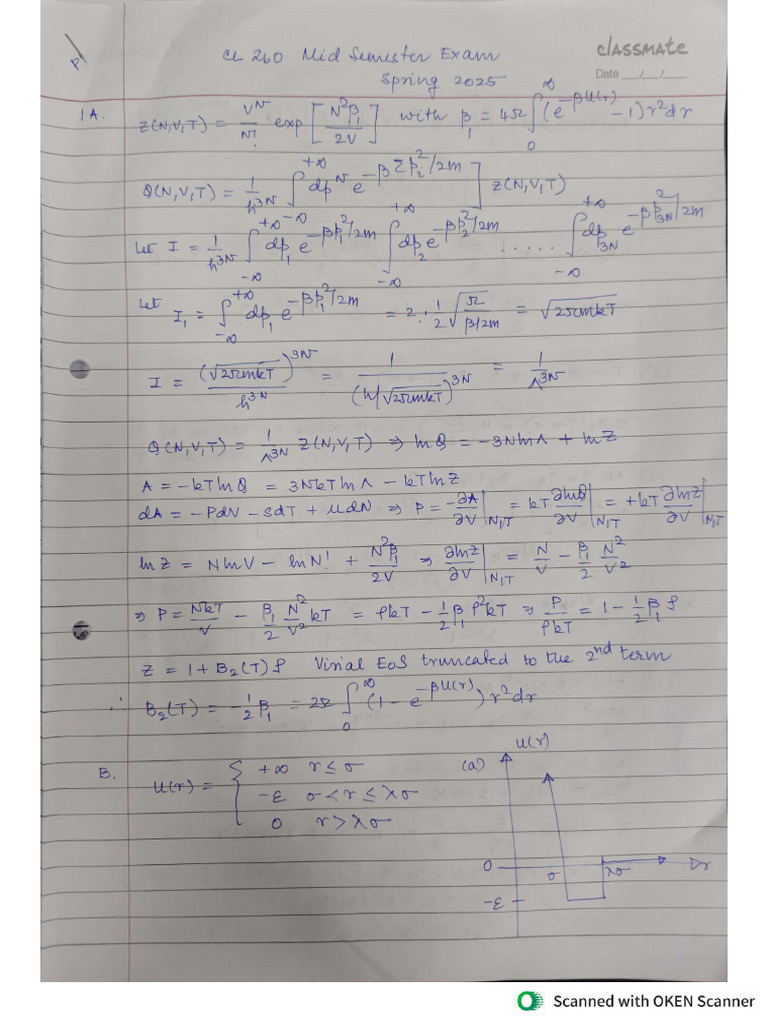 P
CL 260 Mid Semester Exam
Spring 2025
classmate
Date __/__/__
1A. Z(N,V,T) = V^N/N! exp[N²β₁/2V] with β₁ = 4π ∫₀^∞ (e^{-βU(r)} - 1) r² dr
Q(N,V,T) = 1/h^{3N} ∫_{-∞}^{+∞} dp^N e^{-βΣp_i²/2m} ] Z(N,V,T)
Let I = 1/h^{3N} ∫_{-∞}^{+∞} dp₁ e^{-βp₁²/2m} ∫_{-∞}^{+∞} dp₂ e^{-βp₂²/2m} ..... ∫_{-∞}^{+∞} dp_{3N} e^{-βp_{3N}²/2m}
Let I₁ = ∫_{-∞}^{+∞} dp₁ e^{-βp₁²/2m} = 2·1/2 √(π/(β/2m)) = √(2πmkT)
I = (√(2πmkT))^{3N}/h^{3N} = 1/(h/√(2πmkT))^{3N} = 1/Λ^{3N}
Q(N,V,T) = 1/Λ^{3N} Z(N,V,T) ⇒ lnQ = -3NlnΛ + lnZ
A = -kTlnQ = 3NkTlnΛ - kTlnZ
dA = -PdV - SdT + μdN ⇒ P = -∂A/∂V|_{N,T} = kT ∂lnQ/∂V|_{N,T} = +kT ∂lnZ/∂V|_{N,T}
lnZ = NlnV - lnN! + N²β₁/2V ⇒ ∂lnZ/∂V|_{N,T} = N/V - β₁/2 N²/V²
⇒ P = NkT/V - β₁/2 N²/V² kT = ρkT - 1/2 β₁ρ²kT ⇒ P/ρkT = 1 - 1/2 β₁ρ
Z = 1 + B₂(T)ρ Virial EoS truncated to the 2nd term
∴ B₂(T) = -1/2 β₁ = 2π ∫₀^∞ (1 - e^{-βU(r)}) r² dr
B. U(r) = { +∞ r ≤ σ
-ε σ < r ≤ λσ
0 r > λσ
(a) U(r)
0 σ λσ r
-ε
Scanned with OKEN Scanner